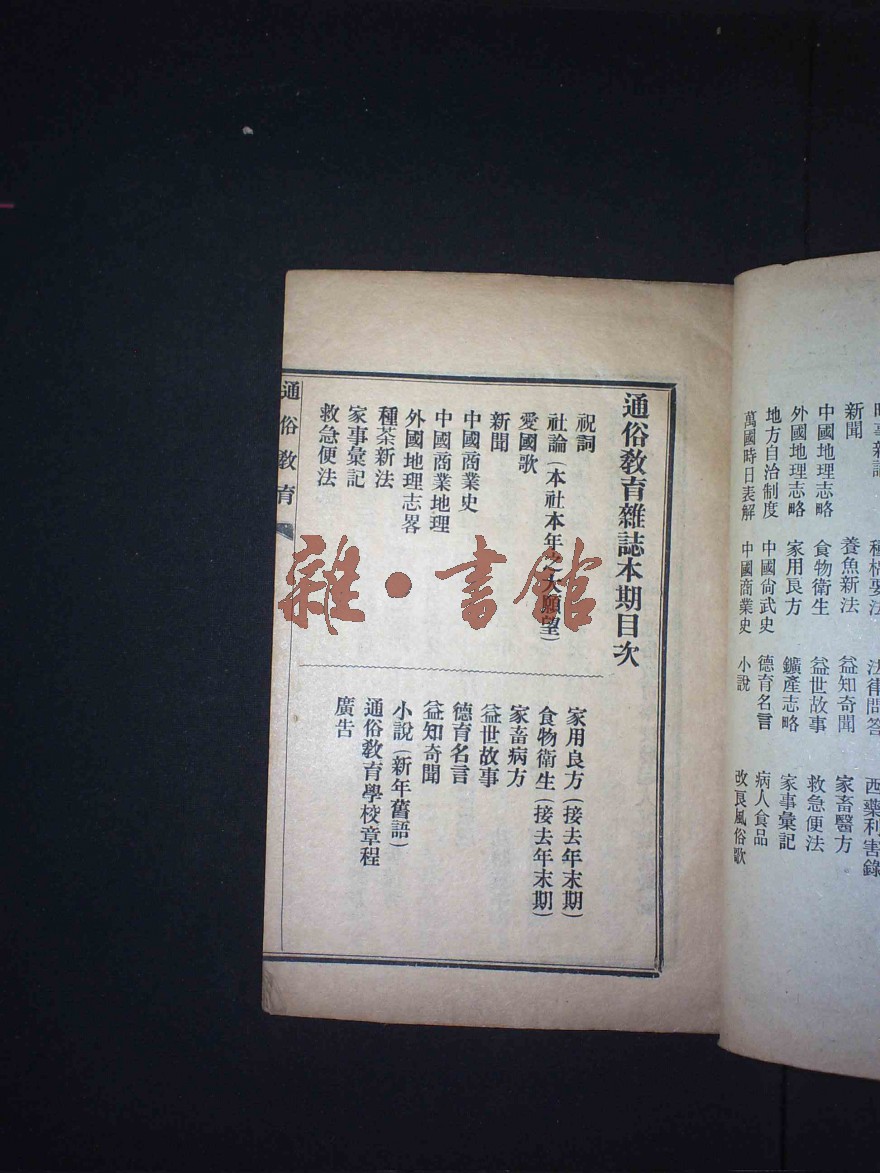 種棉要法 法律問答 西藥利害錄
新聞 養魚新法 益知奇聞 家畜醫方
中國地理志略 食物衛生 益世故事 救急便法
外國地理志略 家用良方 鑛產志略 家事彙記
地方自治制度 中國尙武史 德育名言 病人食品
萬國時日表解 中國商業史 小說 改良風俗歌
通俗敎育雜誌本期目次
祝詞
社論(本社本年之大願望)
愛國歌
新聞
中國商業史
中國商業地理
外國地理志畧
種茶新法
家事彙記
救急便法
家用良方(接去年末期)
食物衛生(接去年末期)
家畜病方
益世故事
德育名言
益知奇聞
小說(新年舊語)
通俗敎育學校章程
廣告
通俗敎育
雜·書館